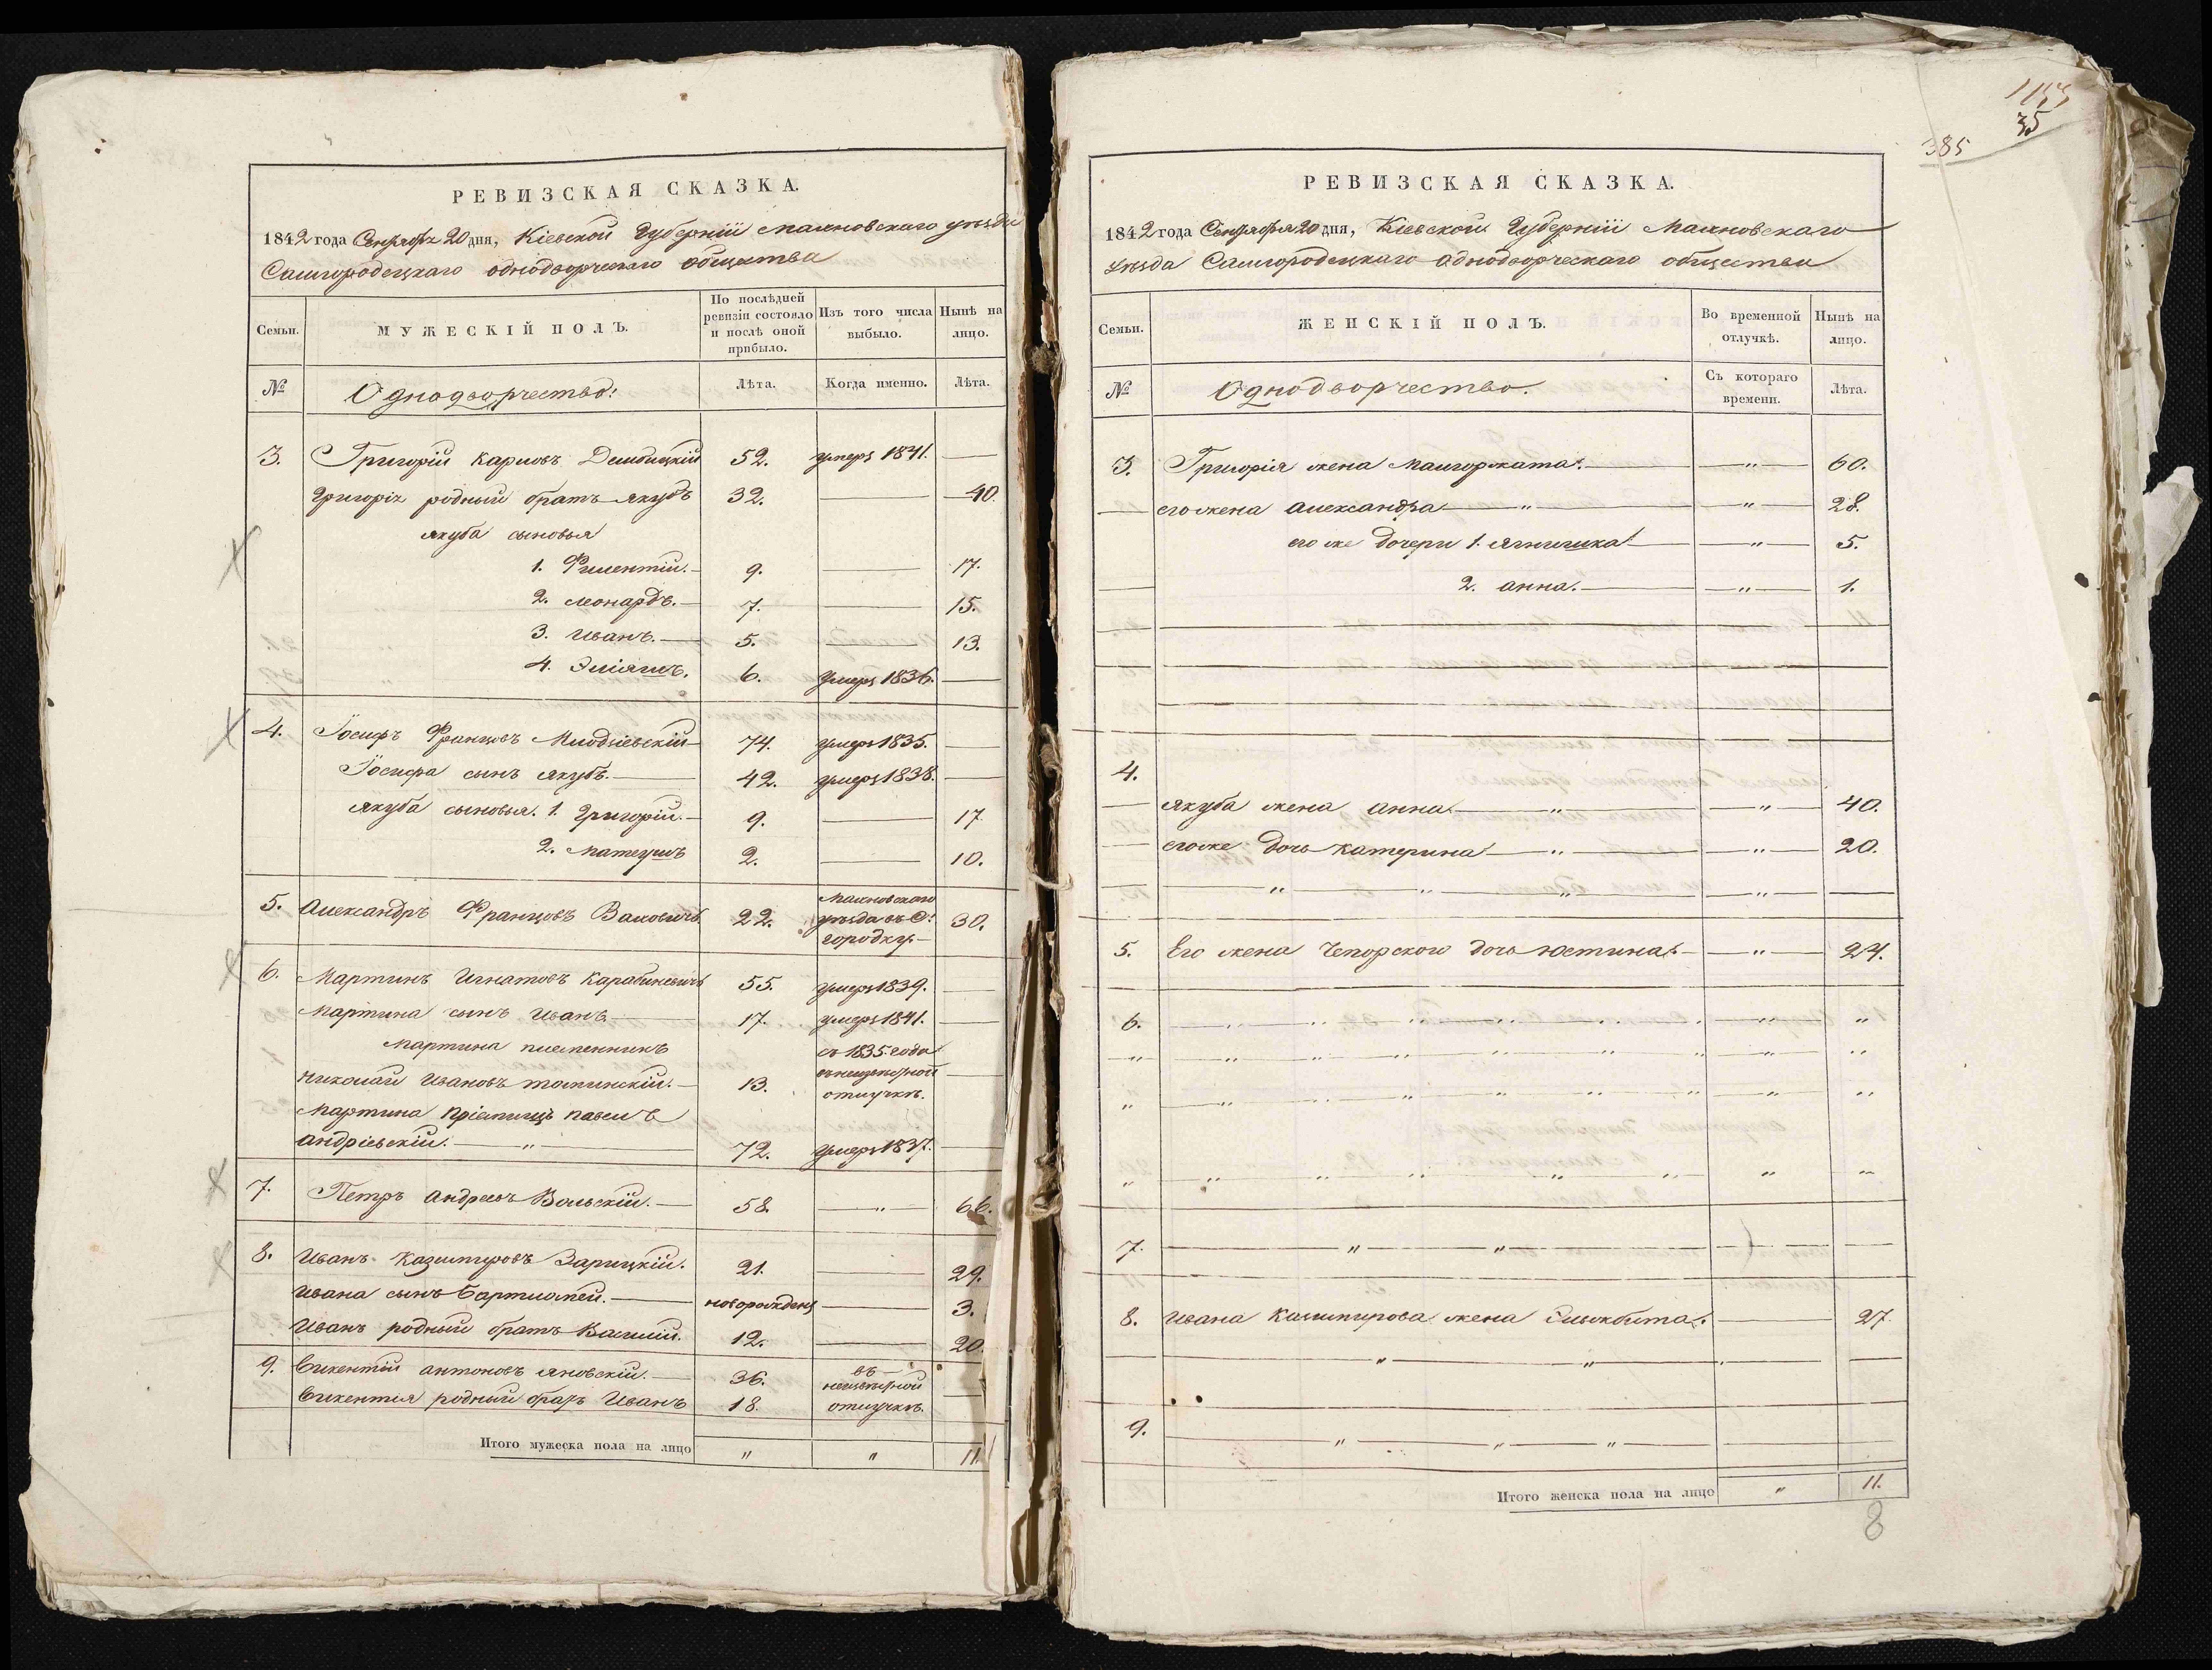 РЕВИЗСКАЯ СКАЗКА.
1842 года Сентября 20 дня, Кіевской Губерніи Махновскаго уѣзда
Самгородецкаго однодворческаго общества
Семьи.
МУЖЕСКІЙ ПОЛЪ.
По послѣдней ревизіи состояло и послѣ оной прибыло.
Изъ того числа выбыло.
Нынѣ на лицо.
№ Однодворчество: Лѣта. Когда именно. Лѣта.
3. Григорій Карловъ Дембицкій 52. умеръ 1841. —
Григорія родный братъ Якубъ 32. — 40.
Якуба сыновья
1. Филентій. 9. — 17.
2. Леонардъ. 7. — 15.
3. Иванъ. 5. — 13.
4. Эліяшъ. 6. умеръ 1836. —
4. Іосифъ Францовъ Млодзіевскій 74. умеръ 1835. —
Іосифа сынъ Якубъ. 42. умеръ 1838. —
Якуба сыновья. 1. Григорій. 9. — 17
2. Матеушъ 2. — 10.
5. Александръ Францовъ Ваховичъ 22. Махновскаго уѣзда въ городку 30.
6. Мартинъ Игнатовъ Карабиневичъ 55. умеръ 1839. —
Мартина сынъ Иванъ 17. умеръ 1841. —
Мартина племенникъ
Николай Ивановъ 13. съ 1835 года въ неизвѣстной отлучкѣ. —
Мартина Павелъ
Андріевскій. " 72. умеръ 1837. —
7. Петръ Андреевъ Вольскій. 58. " 66.
8. Иванъ Казимировъ Зарицкій. 21. — 29.
Ивана сынъ Бартломей. новорожденъ — 3.
Иванъ родный братъ Василій. 12. — 20.
9. Викентій Антоновъ Яновскій. 36. въ неизвѣстной отлучкѣ. —
Викентія родный братъ Иванъ 18.
Итого мужеска пола на лицо " " 11
1155
35
385
РЕВИЗСКАЯ СКАЗКА.
1842 года Сентября 20 дня, Кіевской Губерніи Махновскаго
уѣзда Самгородецкаго однодворческаго общества
Семьи.
ЖЕНСКІЙ ПОЛЪ.
Во временной отлучкѣ.
Нынѣ на лицо.
№ Однодворчество. Съ котораго времени. Лѣта.
3. Григорія жена Малгоржата. " 60.
его жена Александра " " 28.
его же дочери 1. " 5.
2. Анна. " 1.
4.
Якуба жена Анна " " 40.
его же дочь Катерина " " 20.
" " " "
5. Его жена Чепорского дочь Юстина. " 24.
6. " " " " " "
7. " "
8. Ивана Казимирова жена Эльжбита. — 27
" "
9.
" " "
Итого женска пола на лицо " 11.
8